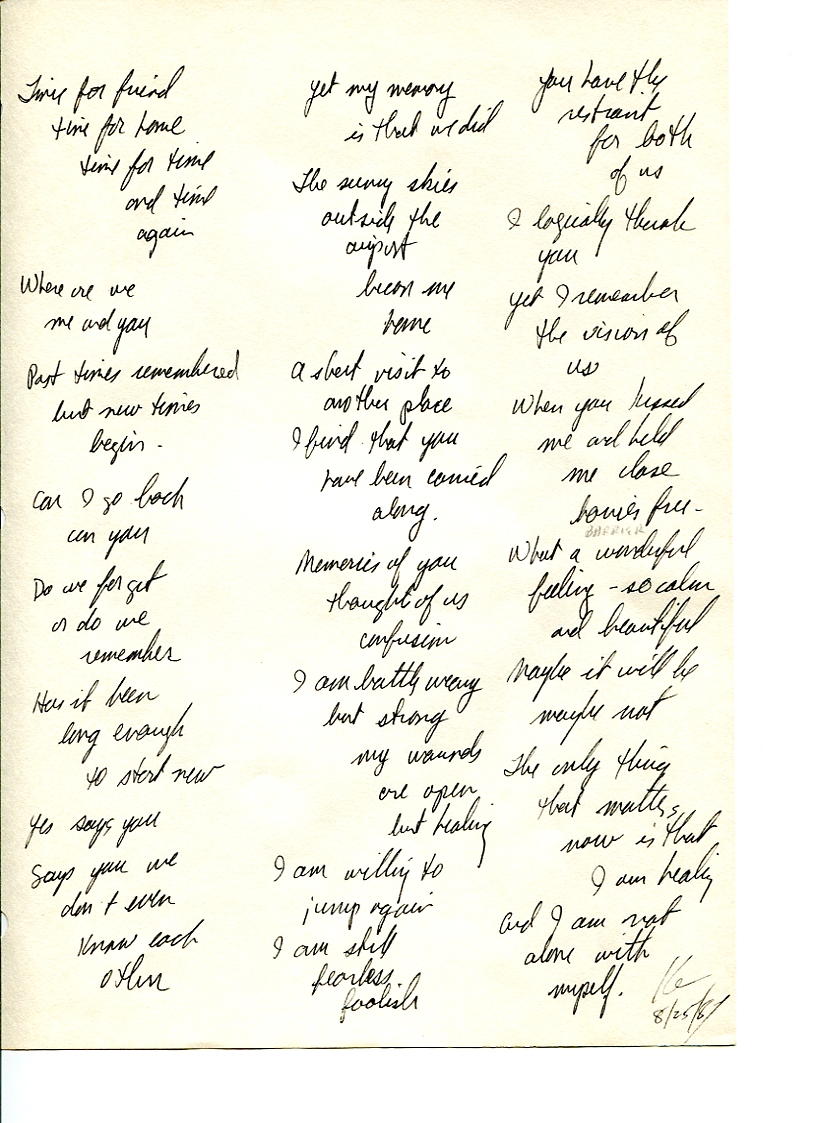 Time for friend
time for home
time for time
and time
again
Where are we
me and you
Past times remembered
but new times
begin.
Can I go back
can you
Do we forget
or do we
remember
Has it been
long enough
to start new
Yes says you
Says you we
don't even
know each
other
yet my memory
is that we did
The sunny skies
outside the
airport
become me
home
A short visit to
another place
I find that you
have been carried
along.
Memories of you
thought of us
confusion
I am battle weary
but strong
my wounds
are open
but healing
I am willing to
jump again
I am still
fearless
foolish
you have the
restraint
for both
of us
I logically thank
you
yet I remember
the vision of
us
When you kissed
me and held
me close
barrier free -
BARRIER
What a wonderful
feeling - so calm
and beautiful
Maybe it will be
maybe not
The only thing
that matters
now is that
I am healing
and I am not
alone with
myself.
8/25/87